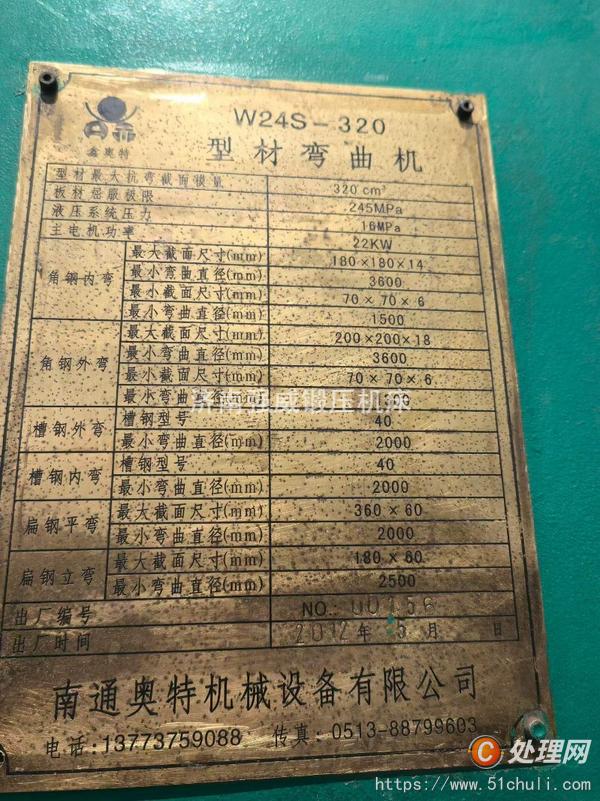 W24S-320
鑫奥特
型材弯曲机
型材最大抗弯截面模量 320cm³
板材屈服极限 245MPa
液压系统压力 16MPa
主电机功率 22KW
角钢内弯 最大截面尺寸(mm) 180×180×14
最小弯曲直径(mm) 3600
最小截面尺寸(mm) 70×70×6
最小弯曲直径(mm) 1500
角钢外弯 最大截面尺寸(mm) 200×200×18
最小弯曲直径(mm) 3600
最小截面尺寸(mm) 70×70×6
最小弯曲直径(mm)
济南强威锻压机床
槽钢外弯 槽钢型号 40
最小弯曲直径(mm) 2000
槽钢内弯 槽钢型号 40
最小弯曲直径(mm) 2000
扁钢平弯 最大截面尺寸(mm) 360×60
最小弯曲直径(mm) 2000
扁钢立弯 最大截面尺寸(mm) 180×60
最小弯曲直径(mm) 2500
出厂编号 NO: 00156
出厂时间 2012年 5月 日
南通奥特机械设备有限公司
电话:13773759088 传真:0513-88799603
C处理网
https://www.51chuli.com/